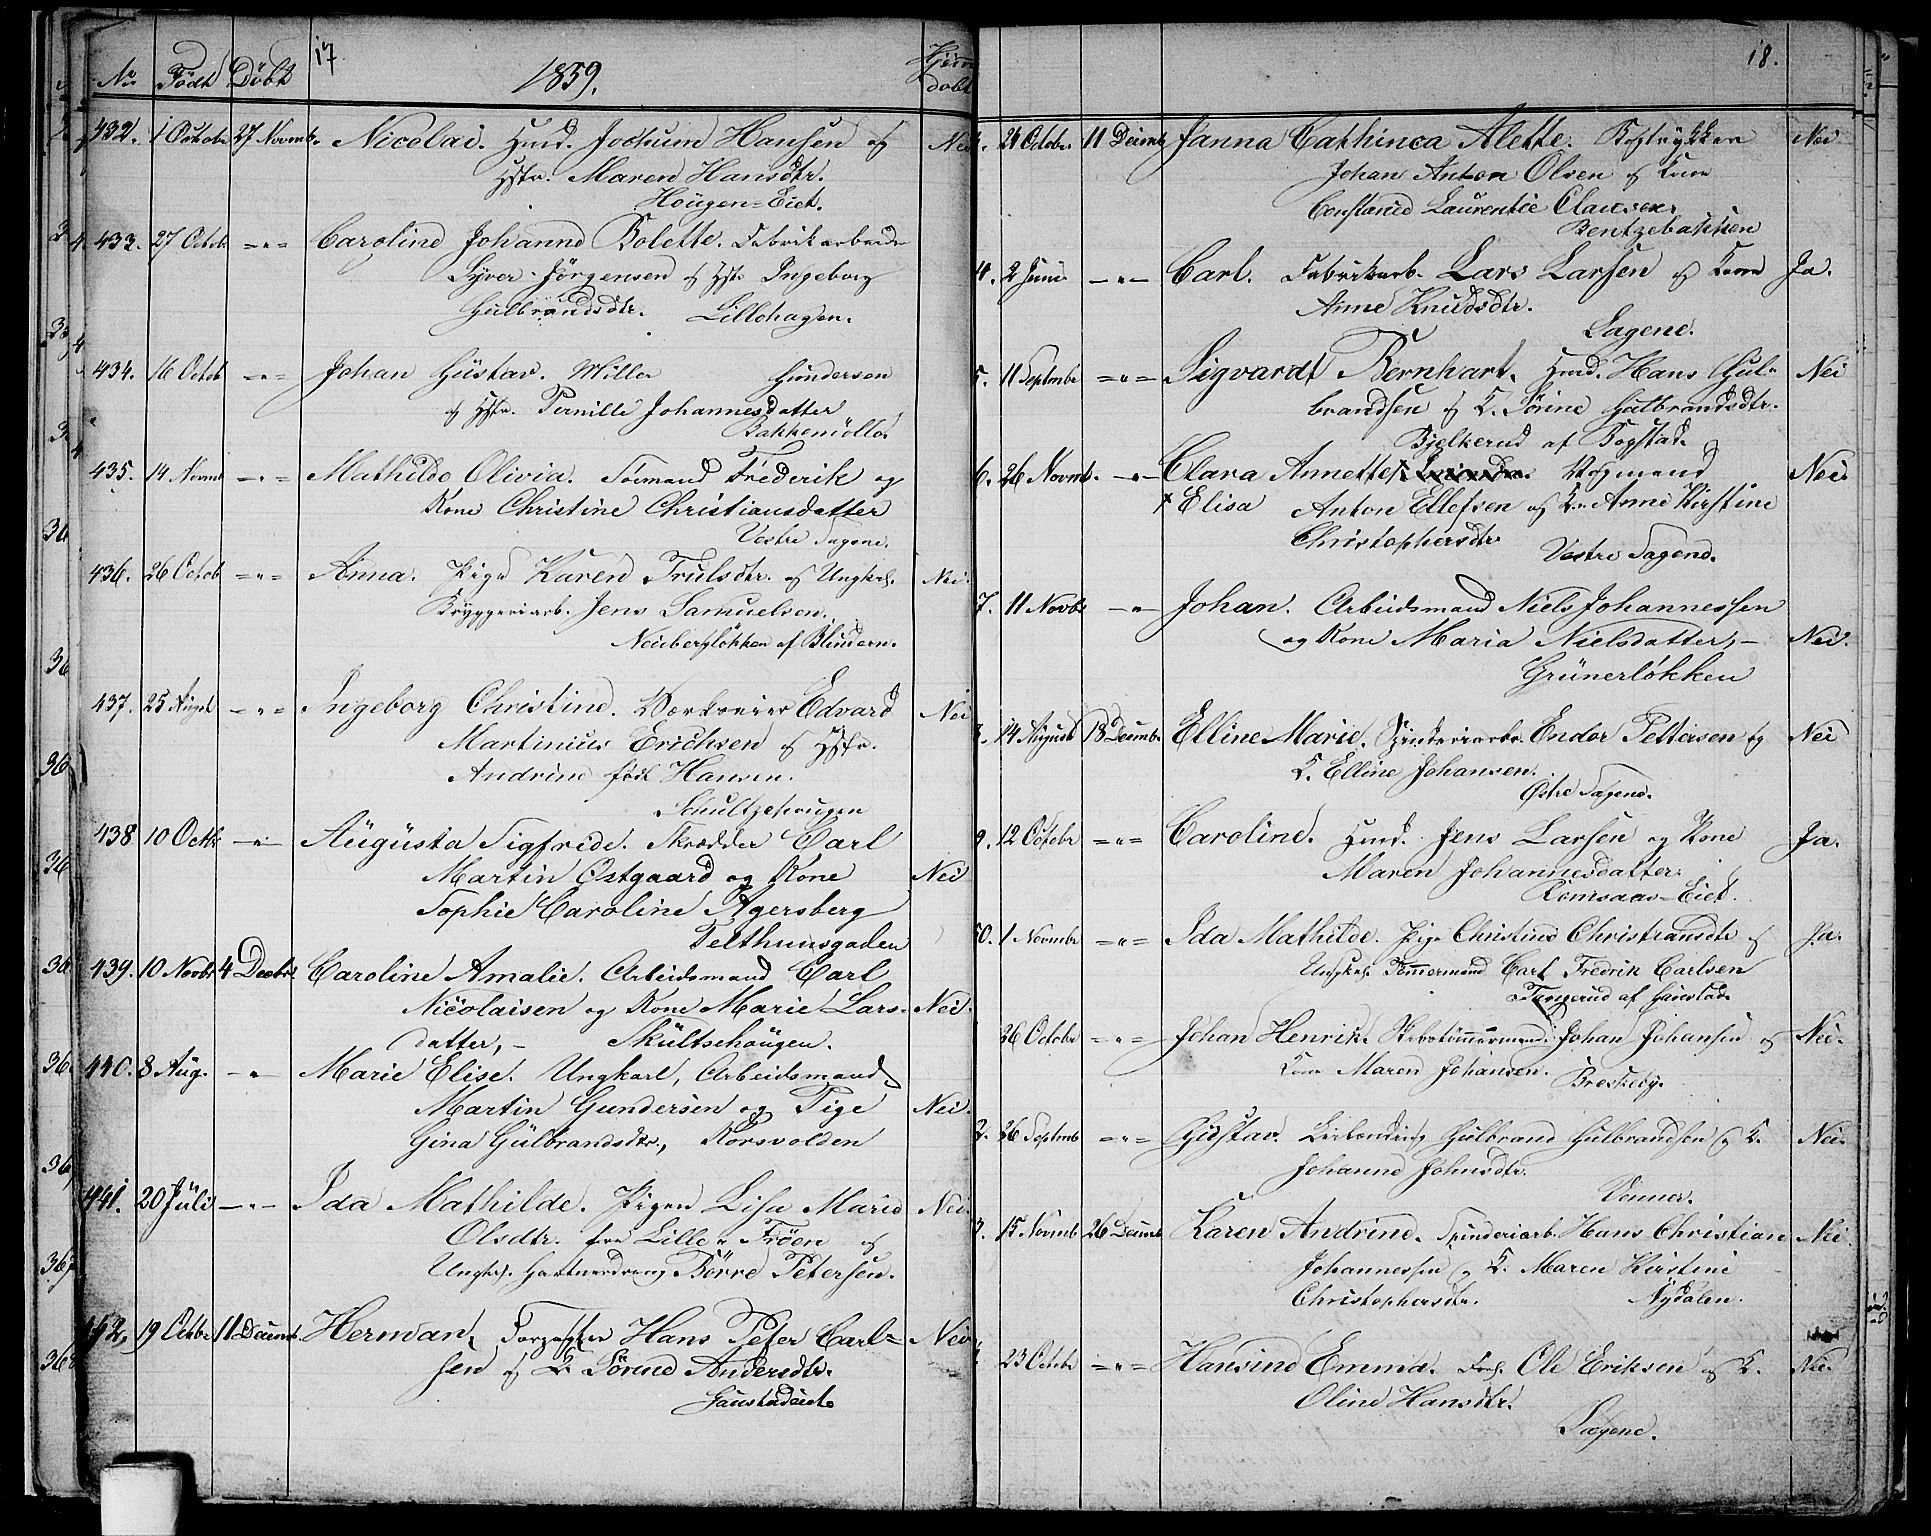 17.
No Født Døbt 1859. Hjem døbt
432. 1 Octobr 27 Novmb. Nicolai. Husd. Jochum Hansen og Nei
Hstr. Maren Hansdtr.
Hougen-Eiet.
433. 27 Octob. -"- Caroline Johanne Bolette. Fabrikarbeider
Syver Jörgensen og Hstr Ingeborg
Gulbrandsdtr. Lillehagen.
434. 16 Octob -"- Johan Gustav. Møller Gundersen
og Hstr. Pernille Johannesdatter
Bakkemölla
435. 14 Novmb -"- Mathilde Olivia. Sömand Fréderik og
Kone Christine Christiansdatter
Vestre Sagene.
436. 26 Octob -"- Anna. Pige Karen Trulsdtr. og Ungkrl. Nei.
Bryggeriarb. Jens Samuelsen.
Neubergløkken af Blindern.
437. 25 Augst -"- Ingeborg Christine. Værkseier Edvard Nei
Martinius Erichsen og Hstr.
Andrine föd Hansen.
Schultzehougen
438 10 Octbr -"- Augusta Sigfride. Skrædder Carl
Martin Ostgaard og Kone Nei
Sophie Caroline Agersberg
Telthuusgaden
439. 10 Novbr 4 Decbr. Caroline Amalie. Arbeidsmand Carl
Nicolaisen og Kone Marie Lars- Nei.
datter, - Skultsehougen.
440. 8 Aug. -"- Marie Elise. Ungkarl, Arbeidsmand
Martin Gundersen og Pige Nei.
Gina Gulbrandsdtr., Korsvolden
441. 20 Juli -"- Ida Mathilde. Pigen Lisa Marie Nei.
Olsdtr. fra Lille-Fröen og
Ungkrl. Gartnerdreng Börre Petersen.
442, 19 Octbr 11 Decemb. Herman. Forpagter Hans Peter Carl- Nei
sen og K. Sörine Andersdtr.
Gaustadeiet
18.
3. 21 Octobr. 11 Decemb Janna Cathinca Alette. Bogtrykker Nei
Johan Anton Olsen og Kone
Constance Laurentie Clausen.
Bentzebakken
4. 2 Juni -"- Carl. Fabrikarb. Lars Larsen og Kone Ja.
Anne Knudsdtr.
Sagene.
5. 11 Septmbr -"- Sigvardt Bernhart. Husd. Hans Gul- Nei
brandsen og K. Sörine Gulbrandsdtr.
Bjelkerud af Bogstad.
6. 26 Novmb. -"- Clara Annette Vognmand Nei.
x Elisa Anton Ellefsen og K. Anne Kirstine
Christophersdtr
Vestre Sagene.
7. 11 Novbr -"- Johan. Arbeidsmand Niels Johannessen
og Kone Maria Nielsdatter, - Nei.
Grünerløkken
8. 14 August 18 Decemb. Elline Marie. Spinderiarb. Endor Pettersen og Nei
K. Elline Johansen.
Østre Sagene.
9. 12 Octobr -"- Caroline. Husd. Jens Larsen og Kone Ja.
Maren Johannesdatter.
Romsaas-Eiet.
50. 1 Novmbr -"- Ida Mathilde. Pige Christine Christiansdtr og Ja.
Ungkrl. Tömmermand Carl Fredrik Carlsen
Tungerud af Gaustad.
26 Octobr -"- Johan Henrik. Skibstömmermand Johan Johansen og Nei.
Kone Maren Johansen. Breskeby.
2. 26 Septmb -"- Gustav. Leilending Gulbrand Gulbrandsen og K. Nei.
Johanne Johnsdtr.
Vinner.
3. 15 Novmb 26 Decemb. Karen Andrine. Spinderiarb. Hans Christian Nei.
Johannessen og K. Maren Kirstine
Christophersdtr. Nydalen.
23 Octobr -"- Hansine Emma. Ole Eriksen og K. Nei.
Oline Hansdtr.
Sagene.